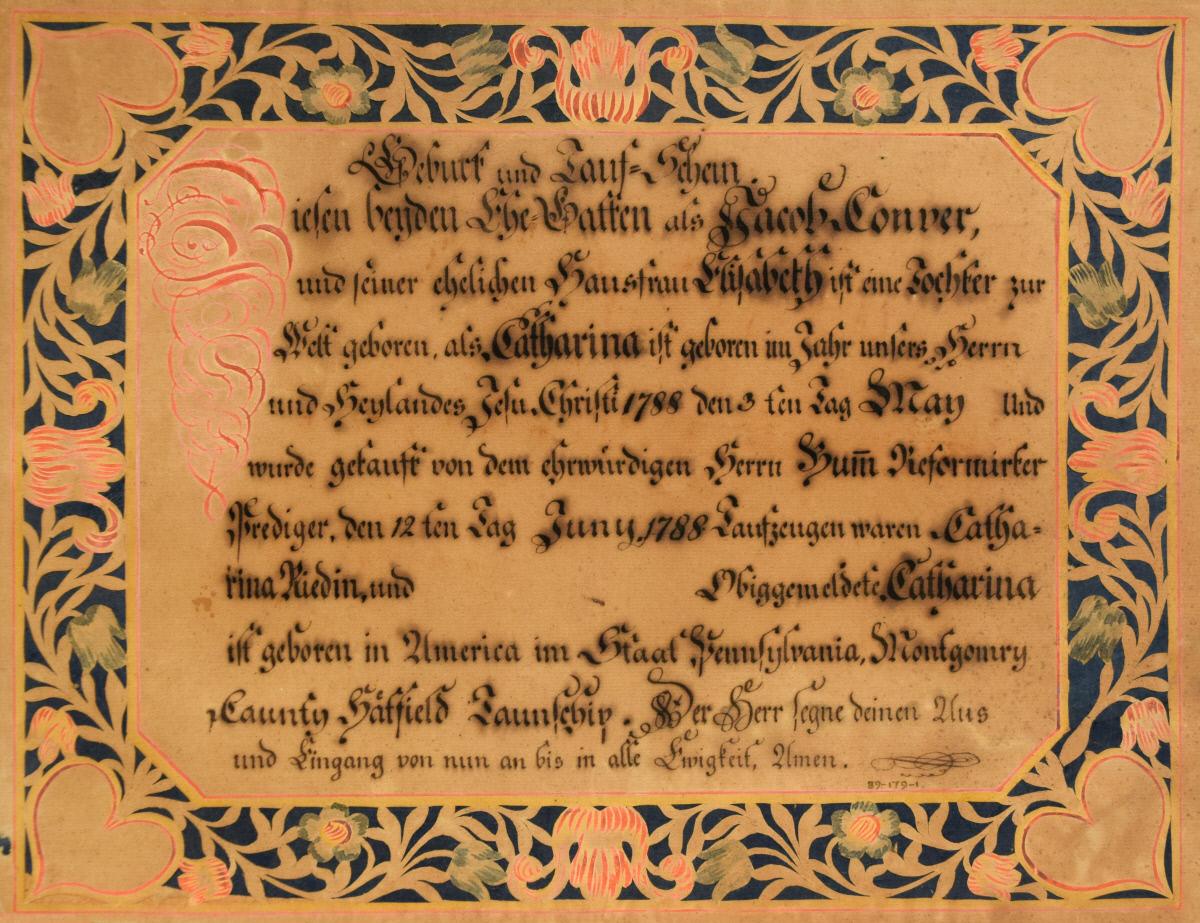 Geburt und Tauf=Schein.
Diesen beyden Ehe=Gatten als Jacob Conver,
und seiner ehelichen Hausfrau Elisabeth ist eine Tochter zur
Welt geboren, als Catharina ist geboren im Jahr unsers Herrn
und Heylandes Jesu Christi 1788 den 3 ten Tag May Und
wurde getauft von dem ehrwürdigen Herrn Hum̅ Reformirter
Prediger, den 12 ten Tag Juny, 1788 Taufzeugen waren Catha=
rina Riedin, und Obiggemeldete Catharina
ist geboren in America im Staat Pennsylvania, Montgomry
Caunty Hätfield Taunschip. Der Herr segne deinen Aus
und Eingang von nun an bis in alle Ewigkeit, Amen.
89-179-1.